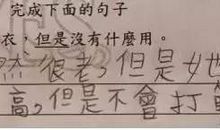 完成下面的句子
衣，但是沒有什麼用。
然很老，但是她
高，但是不會打